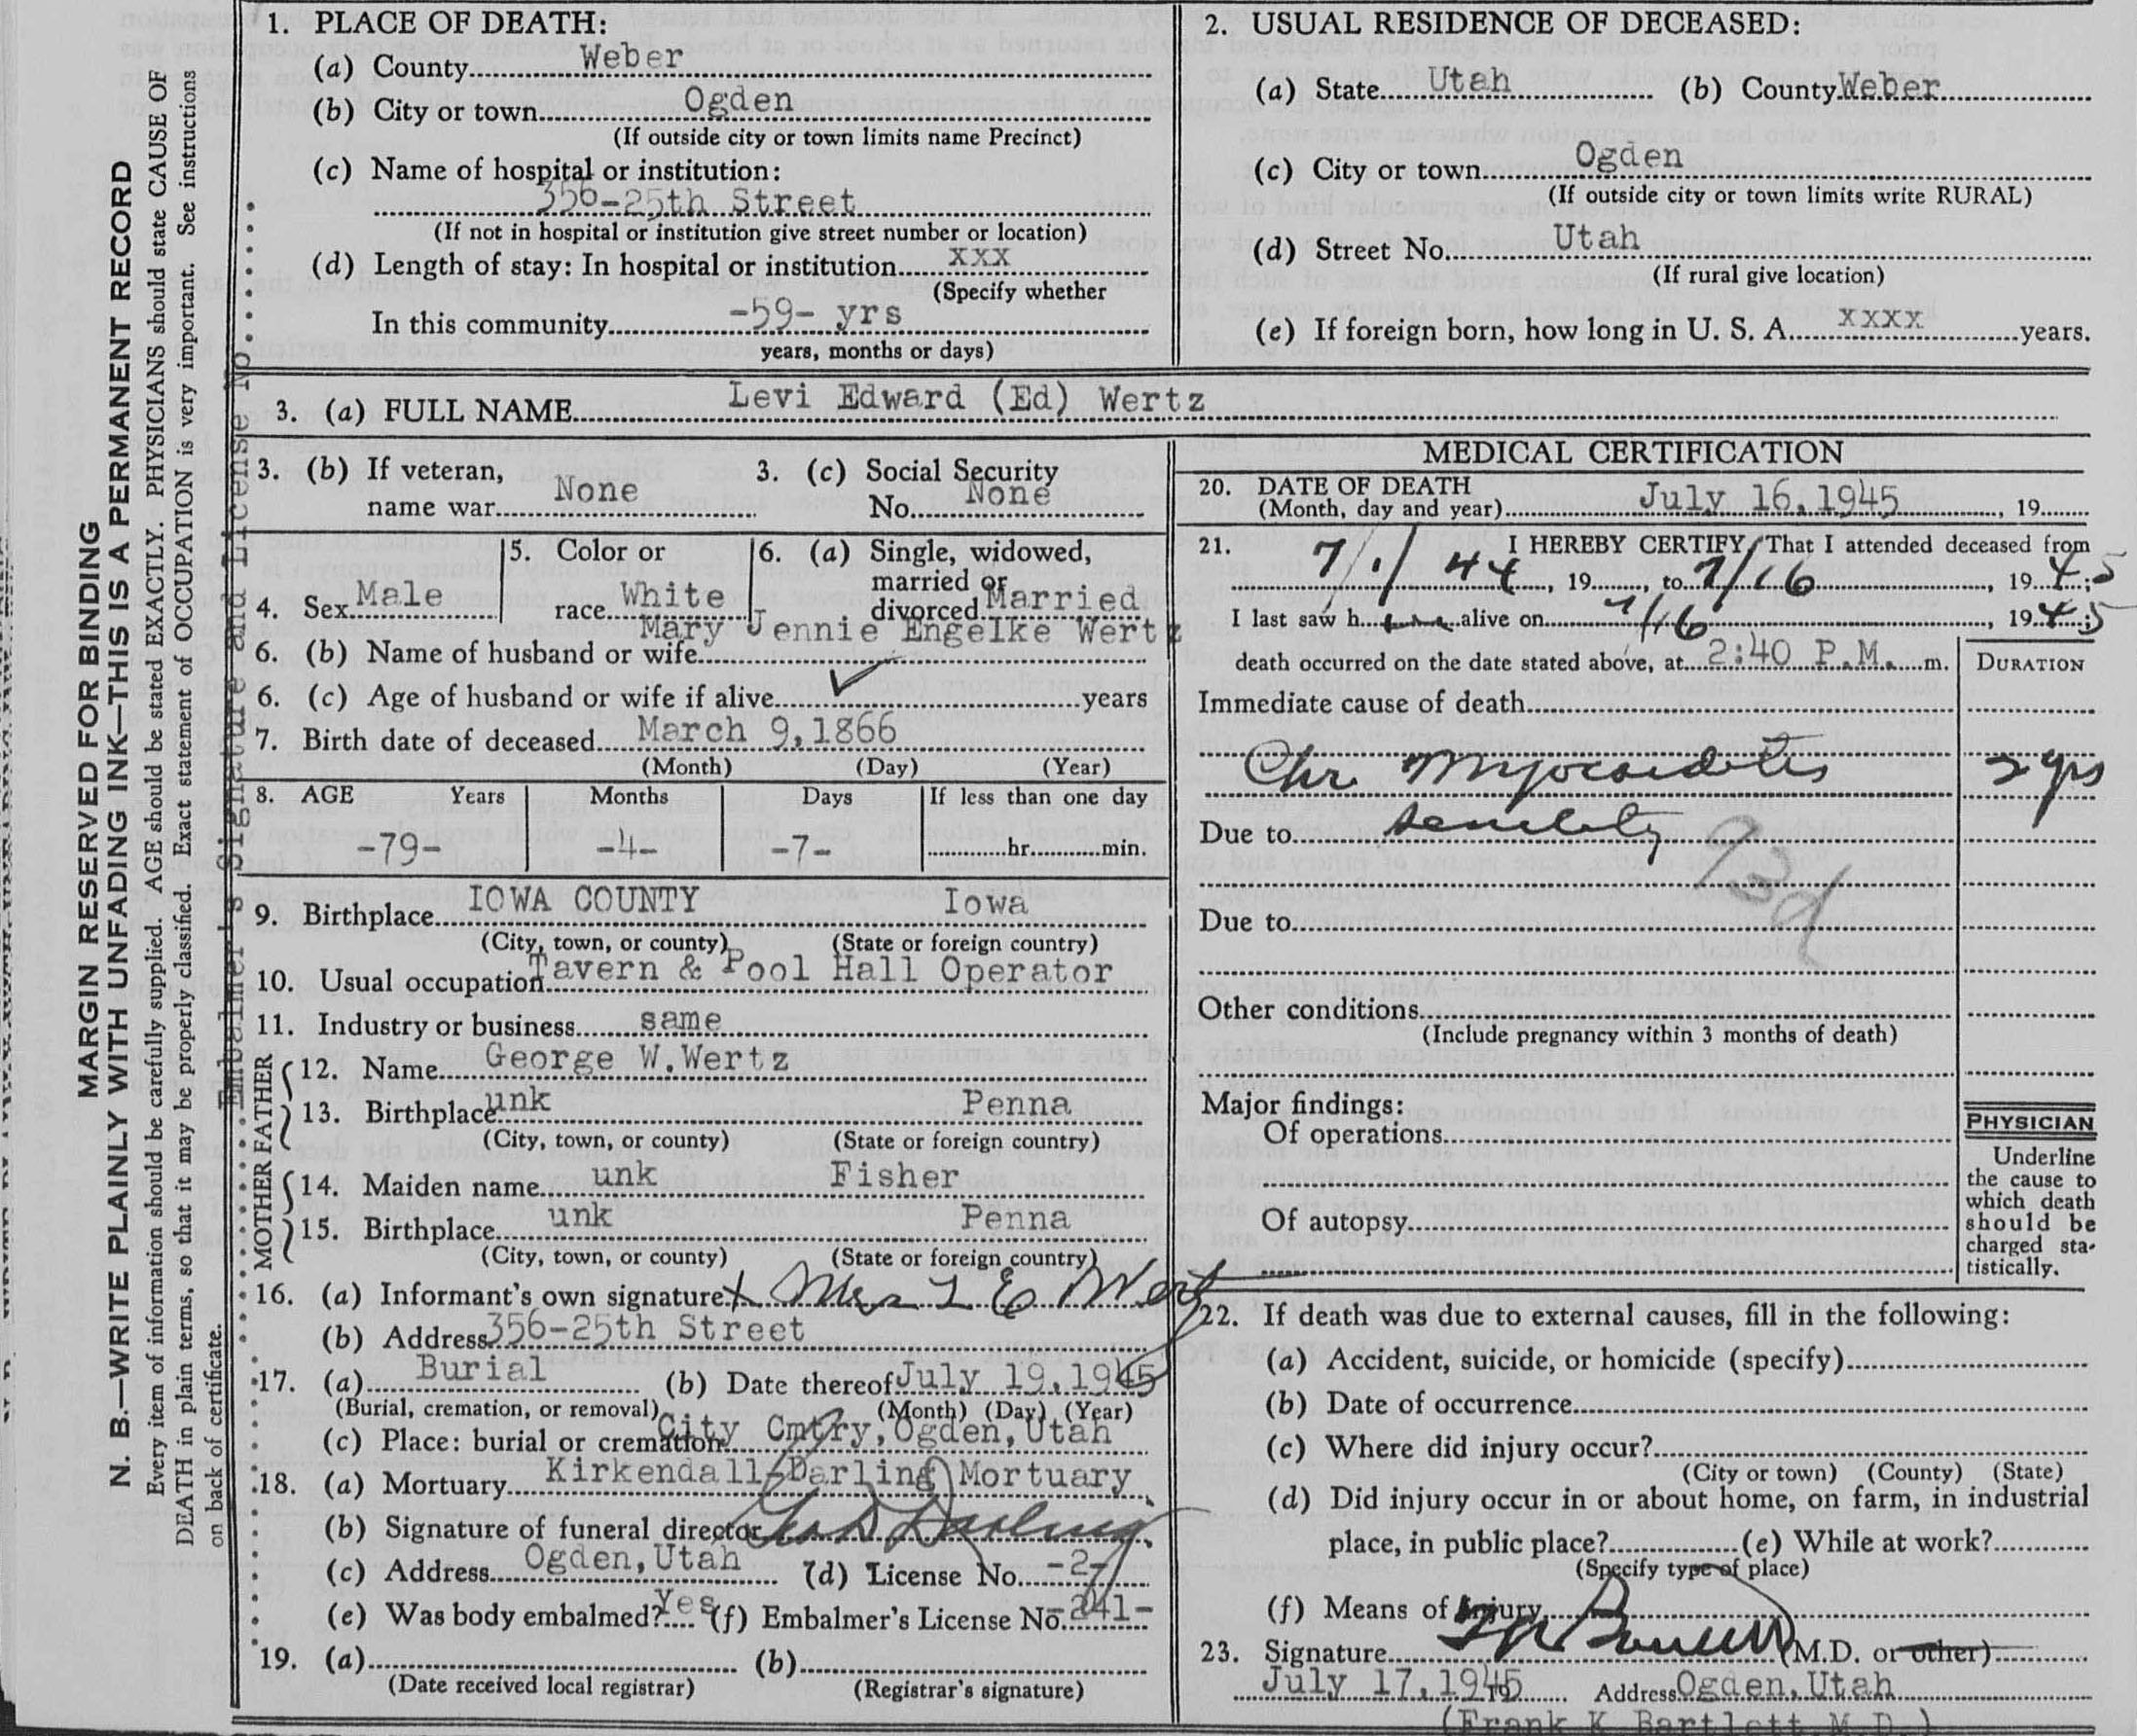 MARGIN RESERVED FOR BINDING
N. B.—WRITE PLAINLY WITH UNFADING INK—THIS IS A PERMANENT RECORD
Every item of information should be carefully supplied. AGE should be stated EXACTLY. PHYSICIANS should state CAUSE OF
DEATH in plain terms, so that it may be properly classified. Exact statement of OCCUPATION is very important. See instructions
on back of certificate.
Embalmer's Signature and License No.
1. PLACE OF DEATH:
(a) County Weber
(b) City or town Ogden
(If outside city or town limits name Precinct)
(c) Name of hospital or institution:
356-25th Street
(If not in hospital or institution give street number or location)
(d) Length of stay: In hospital or institution xxx
(Specify whether
In this community -59- yrs
years, months or days)
2. USUAL RESIDENCE OF DECEASED:
(a) State Utah (b) County Weber
(c) City or town Ogden
(If outside city or town limits write RURAL)
(d) Street No. Utah
(If rural give location)
(e) If foreign born, how long in U. S. A. xxxx years.
3. (a) FULL NAME Levi Edward (Ed) Wertz
3. (b) If veteran,
name war None
3. (c) Social Security
No. None
4. Sex Male
5. Color or
race White
6. (a) Single, widowed,
married or
divorced Married
Mary Jennie Engelke Wertz
6. (b) Name of husband or wife
6. (c) Age of husband or wife if alive years
7. Birth date of deceased March 9, 1866
(Month) (Day) (Year)
8. AGE Years Months Days If less than one day
-79- -4- -7- hr. min.
9. Birthplace IOWA COUNTY Iowa
(City, town, or county) (State or foreign country)
10. Usual occupation Tavern & Pool Hall Operator
11. Industry or business same
FATHER
12. Name George W. Wertz
13. Birthplace unk Penna
(City, town, or county) (State or foreign country)
MOTHER
14. Maiden name unk Fisher
15. Birthplace unk Penna
(City, town, or county) (State or foreign country)
16. (a) Informant's own signature x Mrs L E Wertz
(b) Address 356-25th Street
17. (a) Burial (b) Date thereof July 19, 1945
(Burial, cremation, or removal) (Month) (Day) (Year)
(c) Place: burial or cremation City Cmtry, Ogden, Utah
18. (a) Mortuary Kirkendall-Darling Mortuary
(b) Signature of funeral director Darling
(c) Address Ogden, Utah (d) License No. -2-
(e) Was body embalmed? Yes (f) Embalmer's License No. -241-
19. (a) (b)
(Date received local registrar) (Registrar's signature)
MEDICAL CERTIFICATION
20. DATE OF DEATH
(Month, day and year) July 16, 1945, 19
21. I HEREBY CERTIFY, That I attended deceased from
7/1/44, 19, to 7/16, 1945;
I last saw h im alive on 7/16, 1945;
death occurred on the date stated above, at 2:40 P.M. m.
DURATION
Immediate cause of death
Chr Myocarditis 2 yrs
Due to senility
93d
Due to
Other conditions
(Include pregnancy within 3 months of death)
Major findings:
Of operations
Of autopsy
PHYSICIAN
Underline
the cause to
which death
should be
charged sta-
tistically.
22. If death was due to external causes, fill in the following:
(a) Accident, suicide, or homicide (specify)
(b) Date of occurrence
(c) Where did injury occur?
(City or town) (County) (State)
(d) Did injury occur in or about home, on farm, in industrial
place, in public place? (e) While at work?
(Specify type of place)
(f) Means of injury
23. Signature (M.D. or other)
July 17, 1945 Address Ogden, Utah
(Frank K Bartlett M.D.)